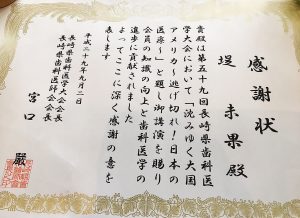 感謝状
堤 未果殿
貴殿は第五十九回長崎県歯科医
学大会において「沈みゆく大国
アメリカ〜逃げ切れ!日本の
医療〜」と題し御講演を賜り
会員の知識の向上と歯科医学の
進歩に貢献されました
よってここに深く感謝の意を
表します
平成二十九年九月三日
長崎県歯科医学大会会長
長崎県歯科医師会会長
宮口 嚴